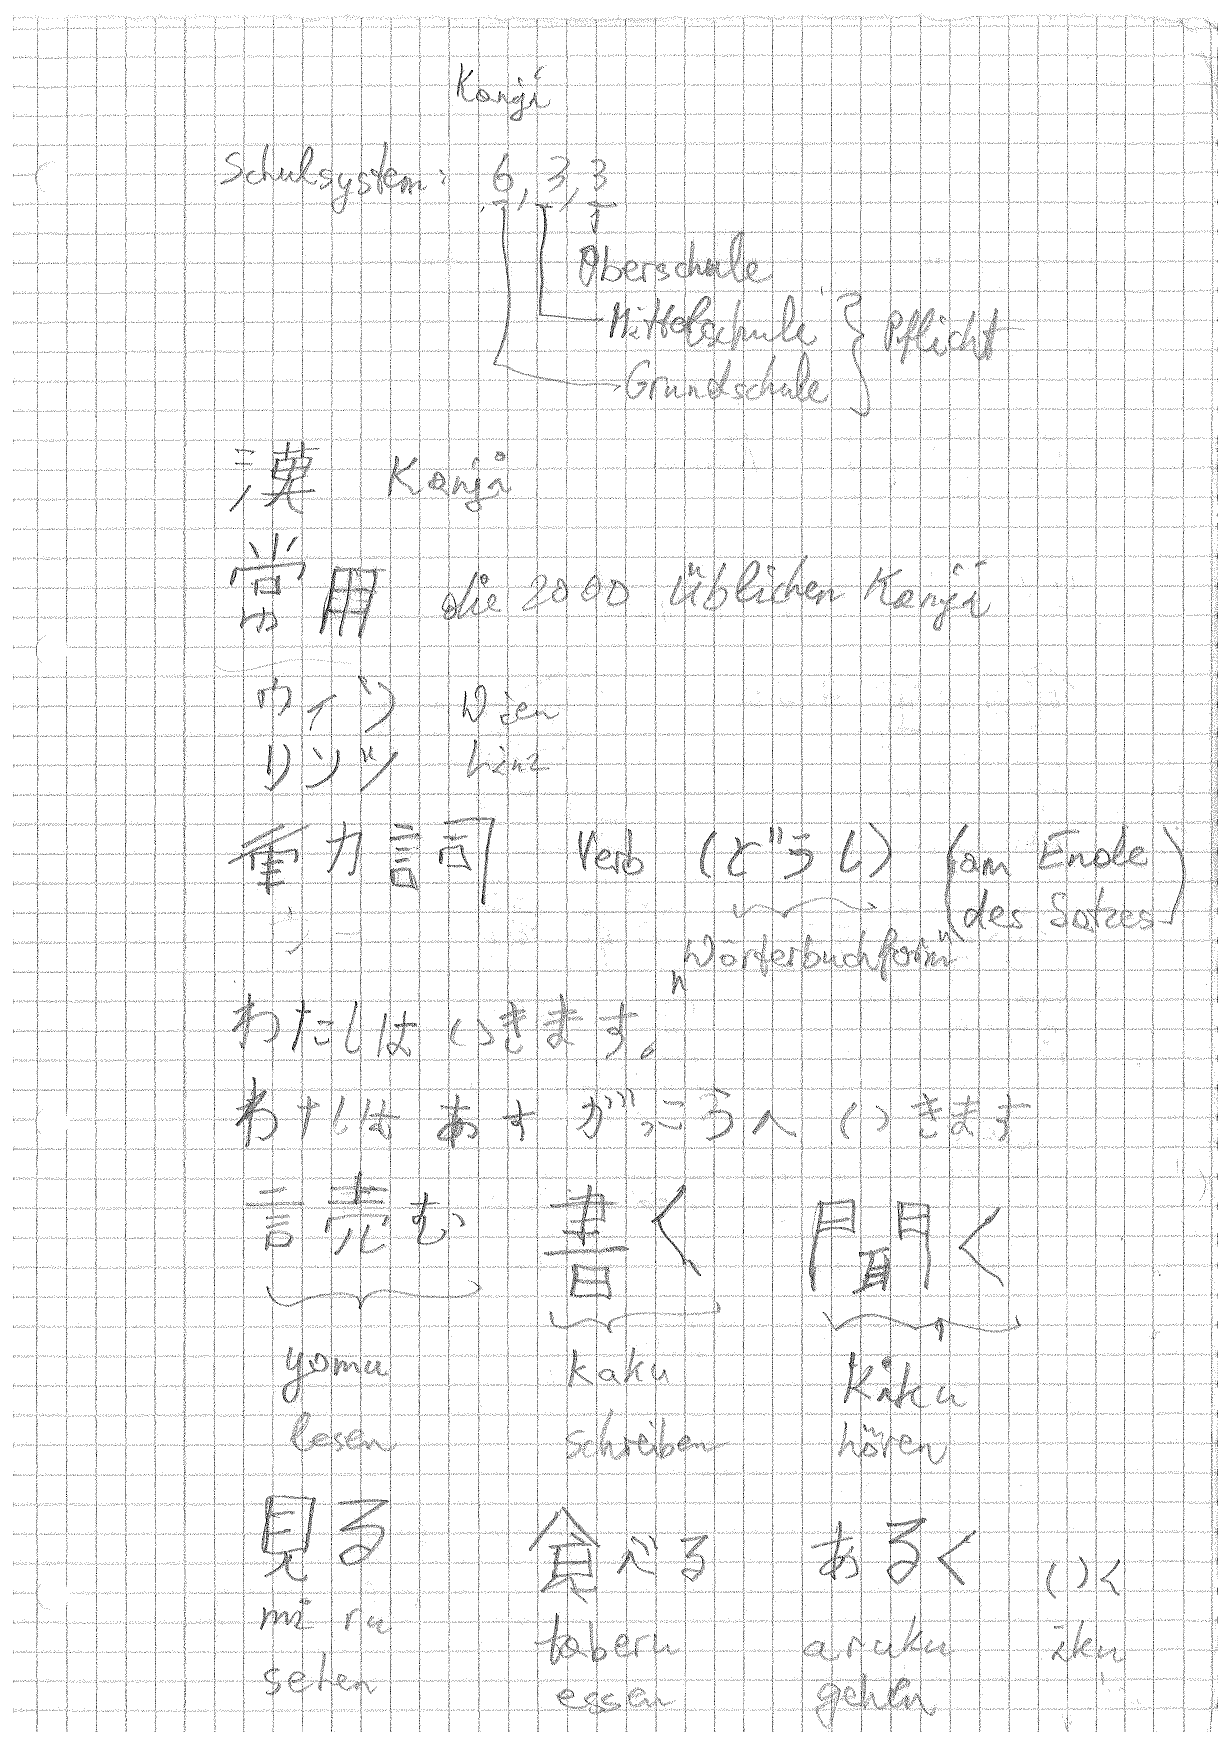 Kanji
Schulsystem: 6, 3, 3
Oberschule
Mittelschule } Pflicht
Grundschule
漢 Kanji
常用 die 2000 üblichen Kanji
ウイン Wien
リンツ Linz
動詞 Verb (どうし) (am Ende des Satzes)
"Wörterbuchform"
わたしは いきます。
わたしは あす がっこうへ いきます
読む 書く 聞く
yomu kaku kiku
lesen schreiben hören
見る 食べる あるく いく
miru taberu aruku iku
sehen essen gehen